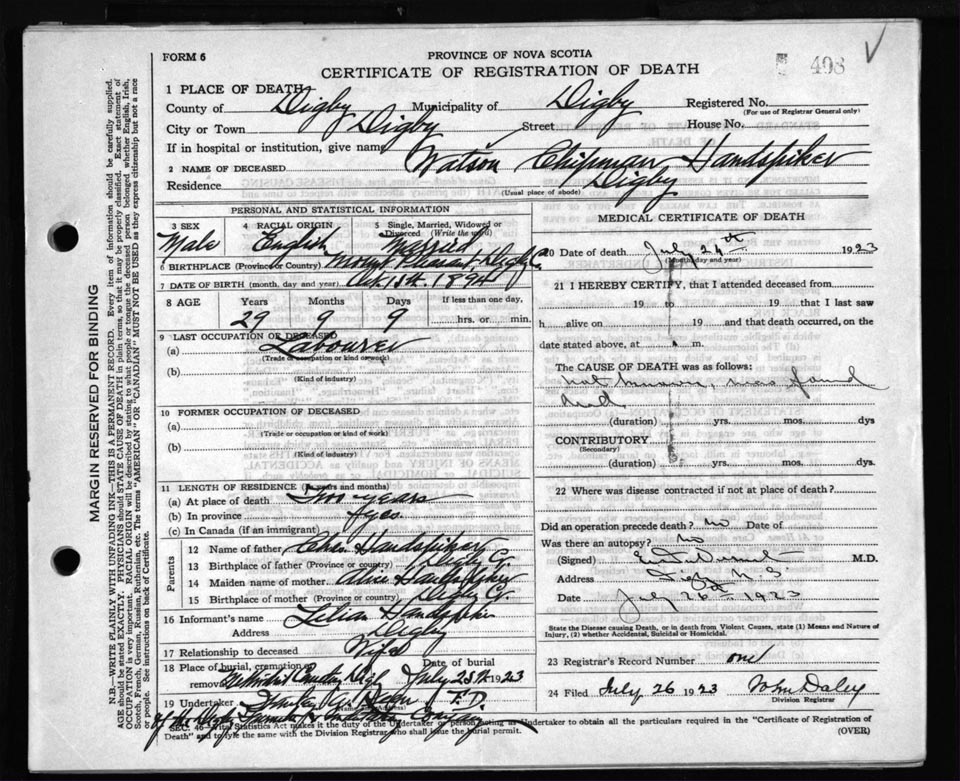 FORM 6
PROVINCE OF NOVA SCOTIA
CERTIFICATE OF REGISTRATION OF DEATH
498
1 PLACE OF DEATH
County of Digby Municipality of Digby Registered No.
(For use of Registrar General only)
City or Town Digby Street House No.
If in hospital or institution, give name
2 NAME OF DECEASED Watson Chipman Handspiker
Residence Digby
(Usual place of abode)
PERSONAL AND STATISTICAL INFORMATION
3 SEX 4 RACIAL ORIGIN 5 Single, Married, Widowed or Divorced (Write the word)
Male English Married
6 BIRTHPLACE (Province or Country) Mount Pleasant, Digby Co
7 DATE OF BIRTH (month, day and year) Oct 15th. 1894
8 AGE Years Months Days If less than one day,
29 9 9 hrs. or min.
9 LAST OCCUPATION OF DECEASED
(a) Labourer
(Trade or occupation or kind of work)
(b)
(Kind of industry)
10 FORMER OCCUPATION OF DECEASED
(a)
(Trade or occupation or kind of work)
(b)
(Kind of industry)
11 LENGTH OF RESIDENCE (In years and months)
(a) At place of death Two years
(b) In province
(c) In Canada (if an immigrant)
Parents
12 Name of father Handspiker
13 Birthplace of father (Province or country) Digby Co.
14 Maiden name of mother Alice Handspiker
15 Birthplace of mother (Province or country) Digby Co.
16 Informant's name Lilian Handspiker
Address Digby
17 Relationship to deceased Wife
18 Place of burial, cremation, Date of burial
removal Methodist July 25th 1923
19 Undertaker
(Address)
SEC. 46 Vital Statistics Act makes it the duty of the Undertaker or person acting as Undertaker to obtain all the particulars required in the "Certificate of Registration of
Death" and to file the same with the Division Registrar who shall issue the burial permit.
(OVER)
MEDICAL CERTIFICATE OF DEATH
20 Date of death July 24th 1923
(Month, day and year)
21 I HEREBY CERTIFY, that I attended deceased from
19 to 19 that I last saw
h alive on 19 and that death occurred, on the
date stated above, at m.
The CAUSE OF DEATH was as follows:
not known, was found
dead
(duration) yrs. mos. dys
CONTRIBUTORY
(Secondary)
(duration) yrs. mos. dys.
22 Where was disease contracted if not at place of death?
Did an operation precede death? no Date of
Was there an autopsy? no
(Signed) M.D.
Address Digby N.S.
Date July 26th 1923
State the Disease causing Death, or in death from Violent Causes, state (1) Means and Nature of
Injury, (2) whether Accidental, Suicidal or Homicidal.
23 Registrar's Record Number one
24 Filed July 26 1923 John Daley
Division Registrar
MARGIN RESERVED FOR BINDING
N.B.—WRITE PLAINLY, WITH UNFADING INK—THIS IS A PERMANENT RECORD. Every item of information should be carefully supplied.
AGE should be stated EXACTLY. PHYSICIANS should STATE CAUSE OF DEATH in plain terms, so that it may be properly classified. Exact statement of
OCCUPATION is very important. RACIAL ORIGIN will be described by stating to what people or tongue the deceased person belonged whether English, Irish,
Scotch, French, German, Russian, Ruthenian, etc. The terms "AMERICAN" or "CANADIAN" MUST NOT BE USED as they express citizenship but not a race
or people. See instructions on back of Certificate.